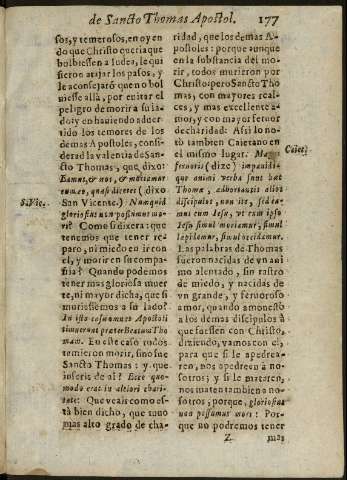 de Sancto Thomas Apostol. 177
sos, y temerosos, en oyen
do que Christo queria que
bolbiessen a Iudea, le qui
sieron atajar los pasos, y
le aconsejarō que no bol
uiesse allà, por euitar el
peligro de morir a su la-
do: y en hauiendo aduer
tido los temores de los
demas Apostoles, consi-
derad la valentia de San
cto Thomas, que dixo:
Eamus, & nos, & moriamur
cum eo, quasi diceret (dixo
San Vicente) Numquid
gloriosius non possumus mo-
ri? Como si dixera: que
tenemos que tener re-
paro, ni miedo en ir con
el, y morir en su compa-
ñia? Quando podemos
tener mas gloriosa muer
te, ni mayor dicha, que si
muriessemos a su lado?
In isto casu omnes Apostoli
timuerunt præter Beatum Tho
mam. En este caso todos
temieron morir, sino fue
Sancto Thomas: y que
inferis de aì? Ecce quo-
modo erat in altiori chari-
tate: Que veais como es-
tà bien dicho, que tuuo
mas alto grado de cha-
S. Vic.
ridad, que los demas A-
postoles: porque aunque
en la substancia del mo-
rir, todos murieron por
Christo; pero Sancto Tho
mas, con mayores real-
ces, y mas excellente a-
mor, y con mayor feruor
de charidad: Asi lo no-
tò tambien Caietano en
el mismo lugar.
(dixo) impauidi-
que animi verba sunt hæc
Thomæ, adhortantis alios
discipulos, non ire, sed ea-
mus cum Iesu, vt cum ipso
Iesu simul moriamur, simul
lapidemur, simul occidamur.
Las palabras de Thomas
fueron nacidas de vn ani
mo alentado, sin rastro
de miedo, y nacidas de
vn grande, y feruoroso
amor, quando amonestò
a los demas discipulos à
que fuessen con Christo,
diziendo, vamos con el,
para que si le apedrea-
ren, nos apedreen à no-
sotros; y si le mataren,
nos maten tambien o no-
sotros; porque, gloriosius
non possumus mori: Por-
que no podremos tener
Caiet.
Z mas